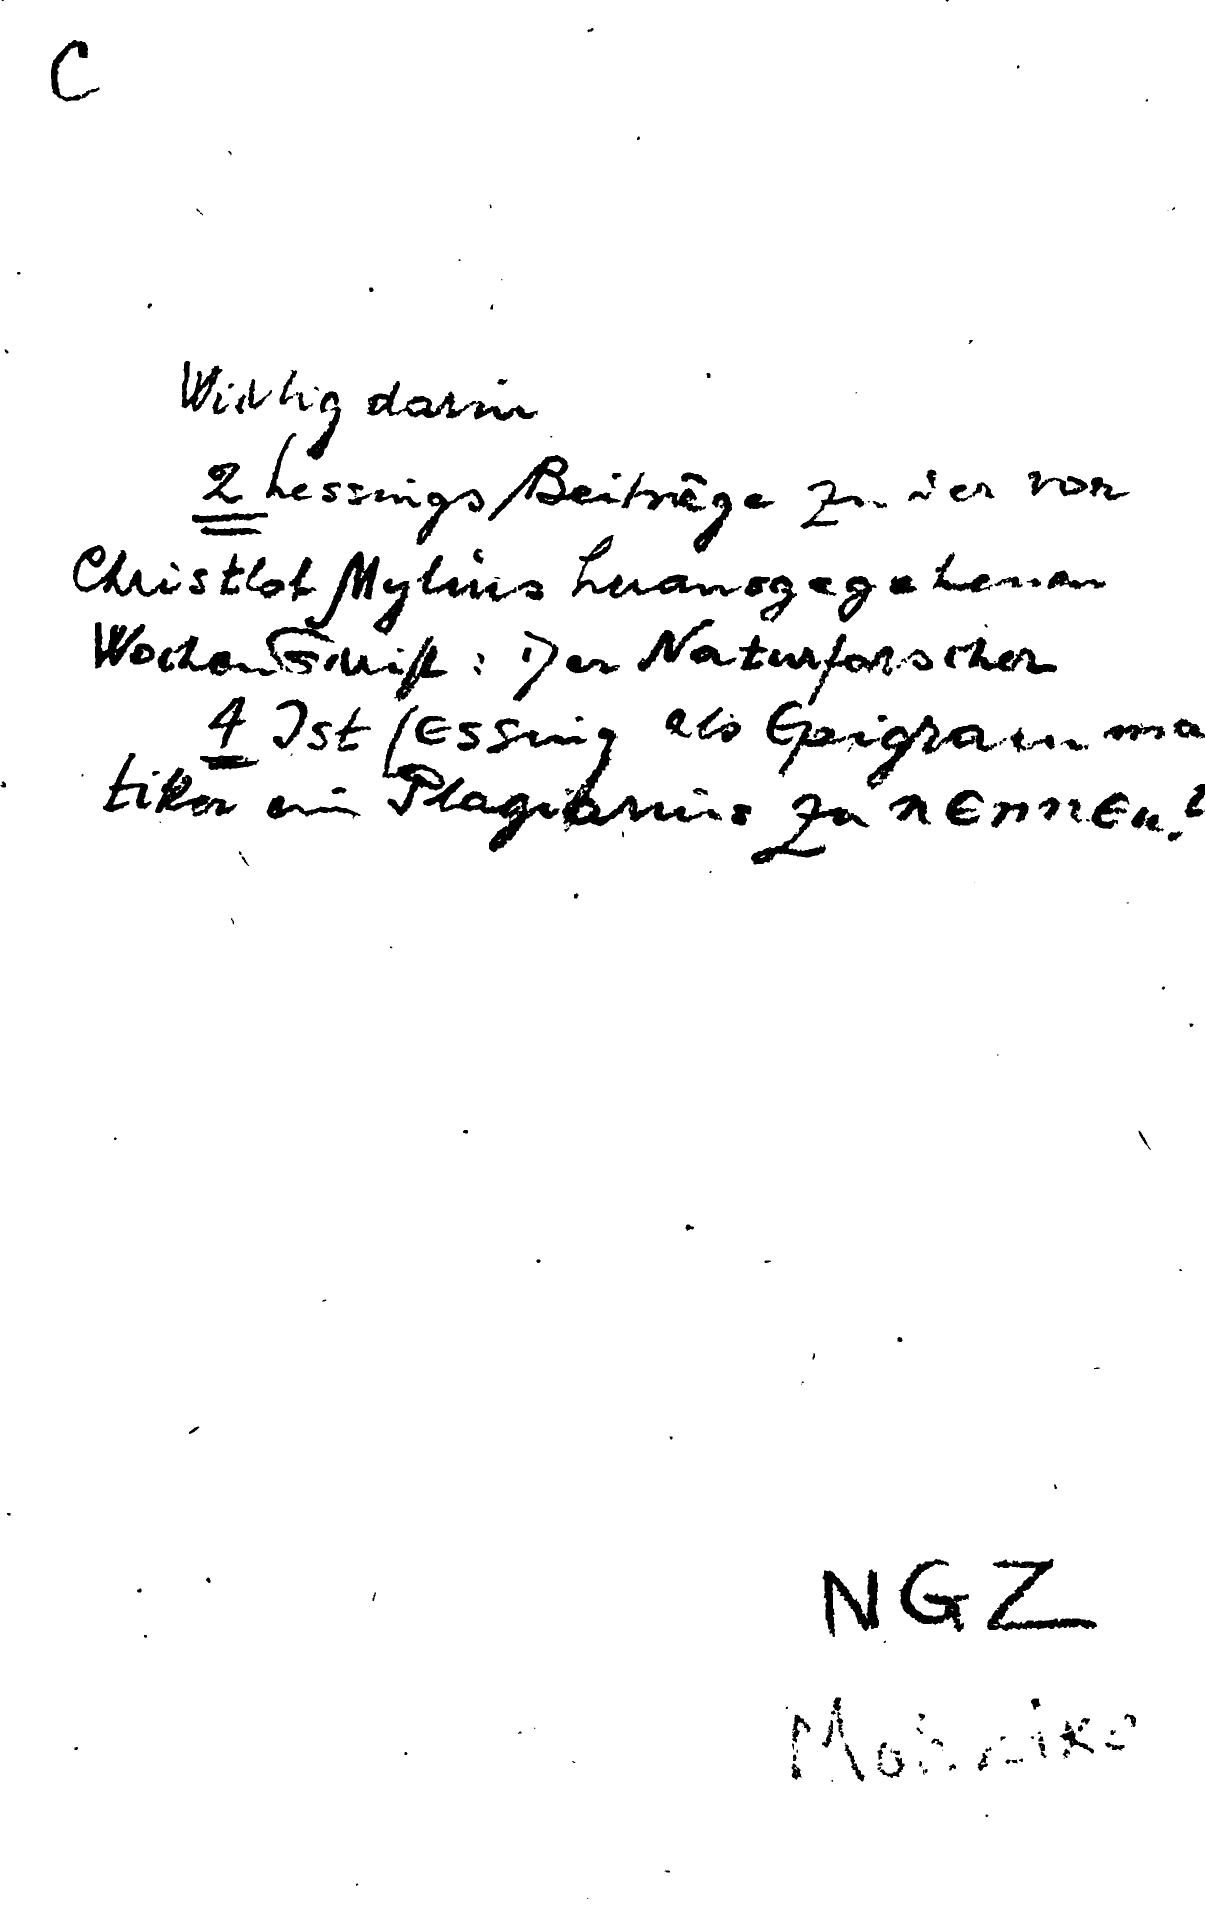 C
Wichtig darin
2 Lessings Beiträge zu der von
Christlob Mylius herausgegebenen
Wochenschrift: Der Naturforscher
4 Ist Lessing als Epigramma
tiker ein Plagiarius zu nennen?
NGZ
Mohnike